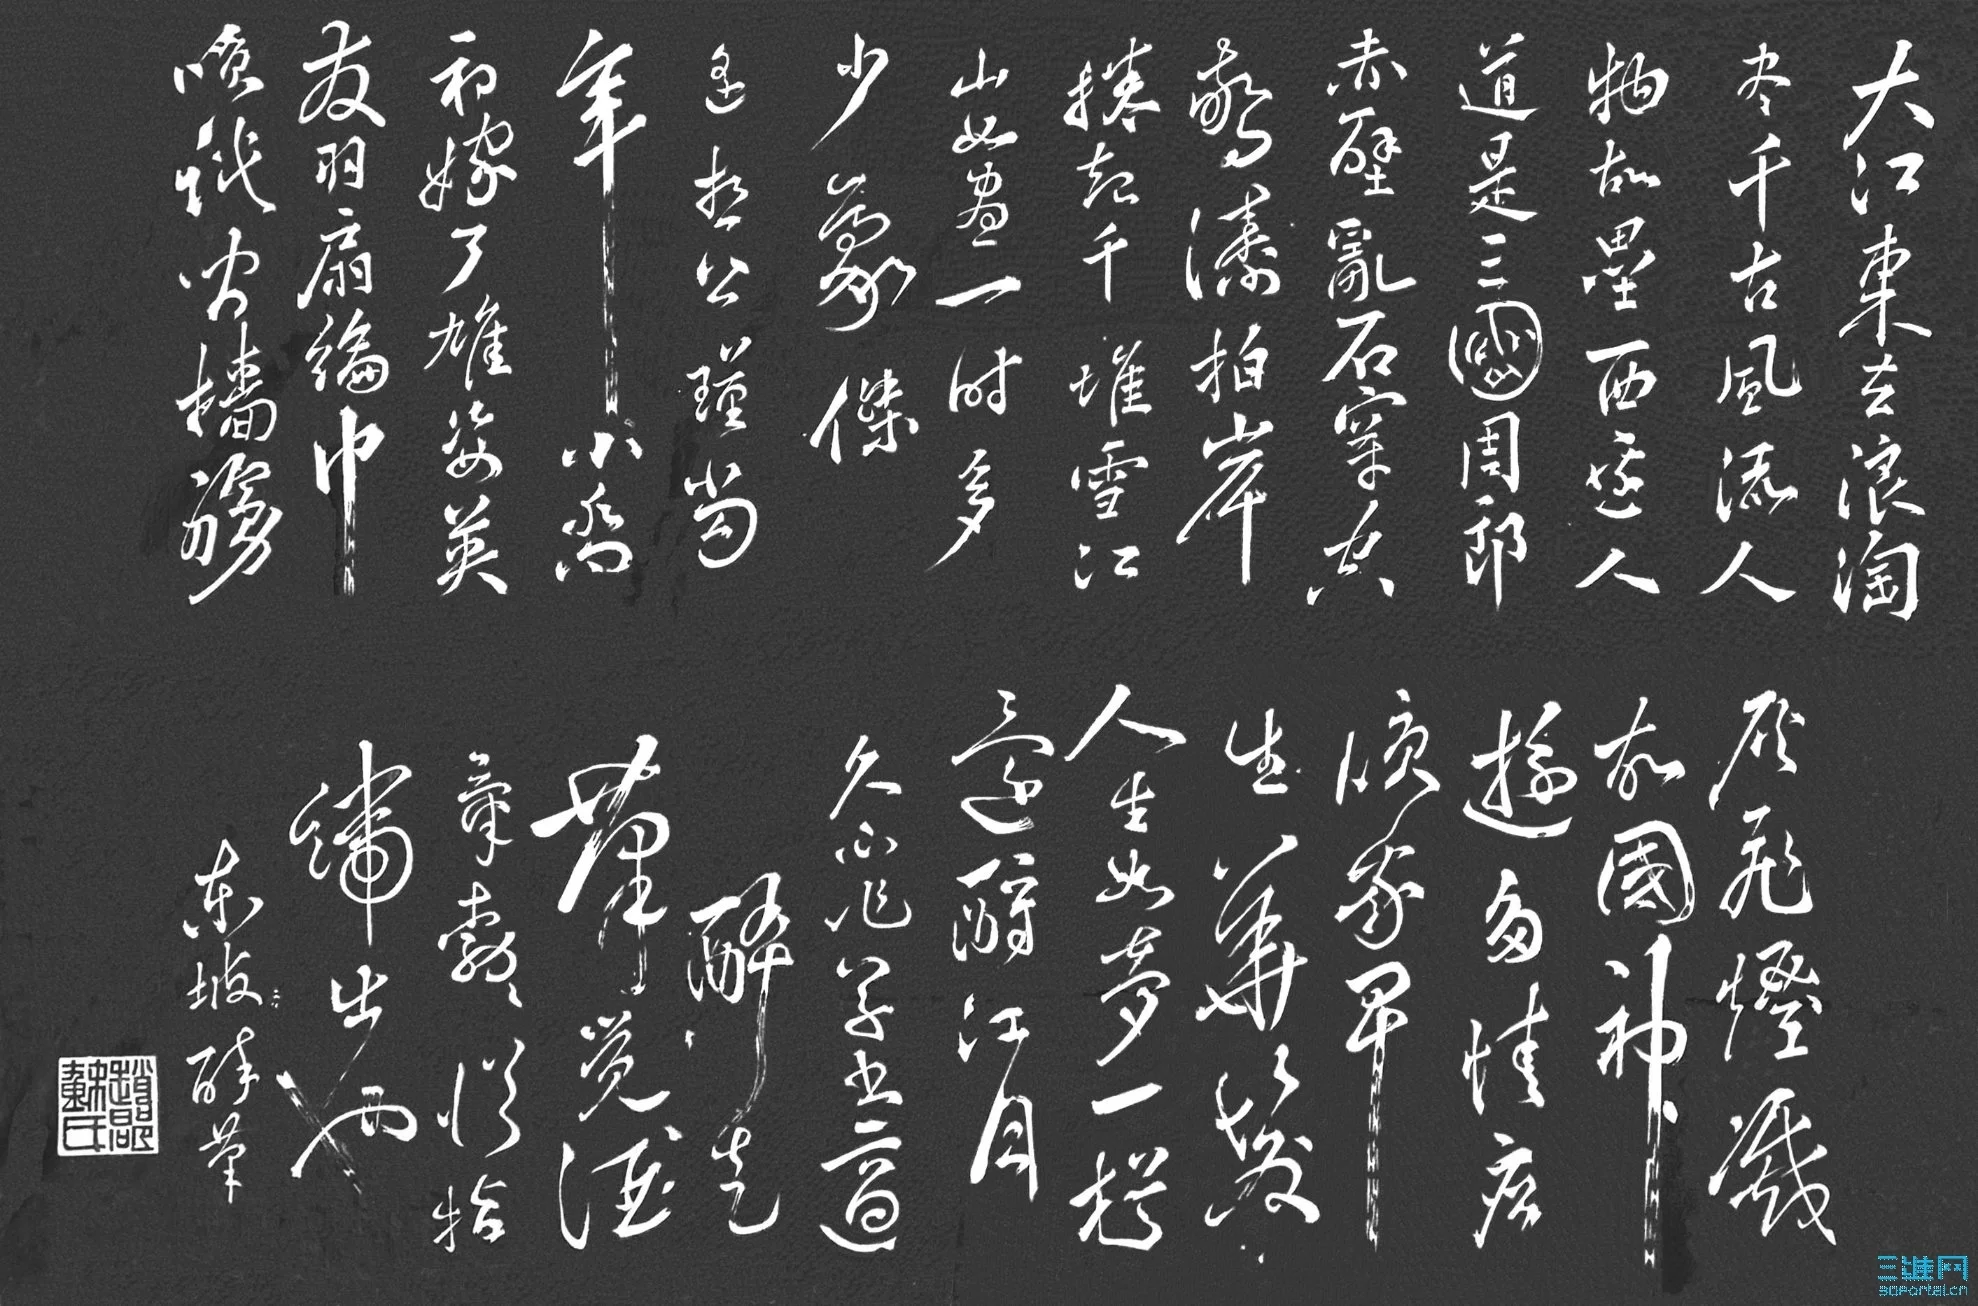 大江東去浪淘
尽千古風流人
物故壘西邊人
道是三國周郎
赤壁亂石穿空
驚濤拍岸
捲起千堆雪江
山如畫一時多
少豪傑
遙想公瑾當
年小喬
初嫁了雄姿英
发羽扇綸巾
笑談間檣艣
灰飛煙滅
故國神
遊多情應
笑我早
生華髮
人生如夢一樽
還酹江月
久不作草書適
醉走
筆覺酒
氣勃勃從指
端出也
東坡醉筆
趙郡蘇氏
三维网
3dportal.cn